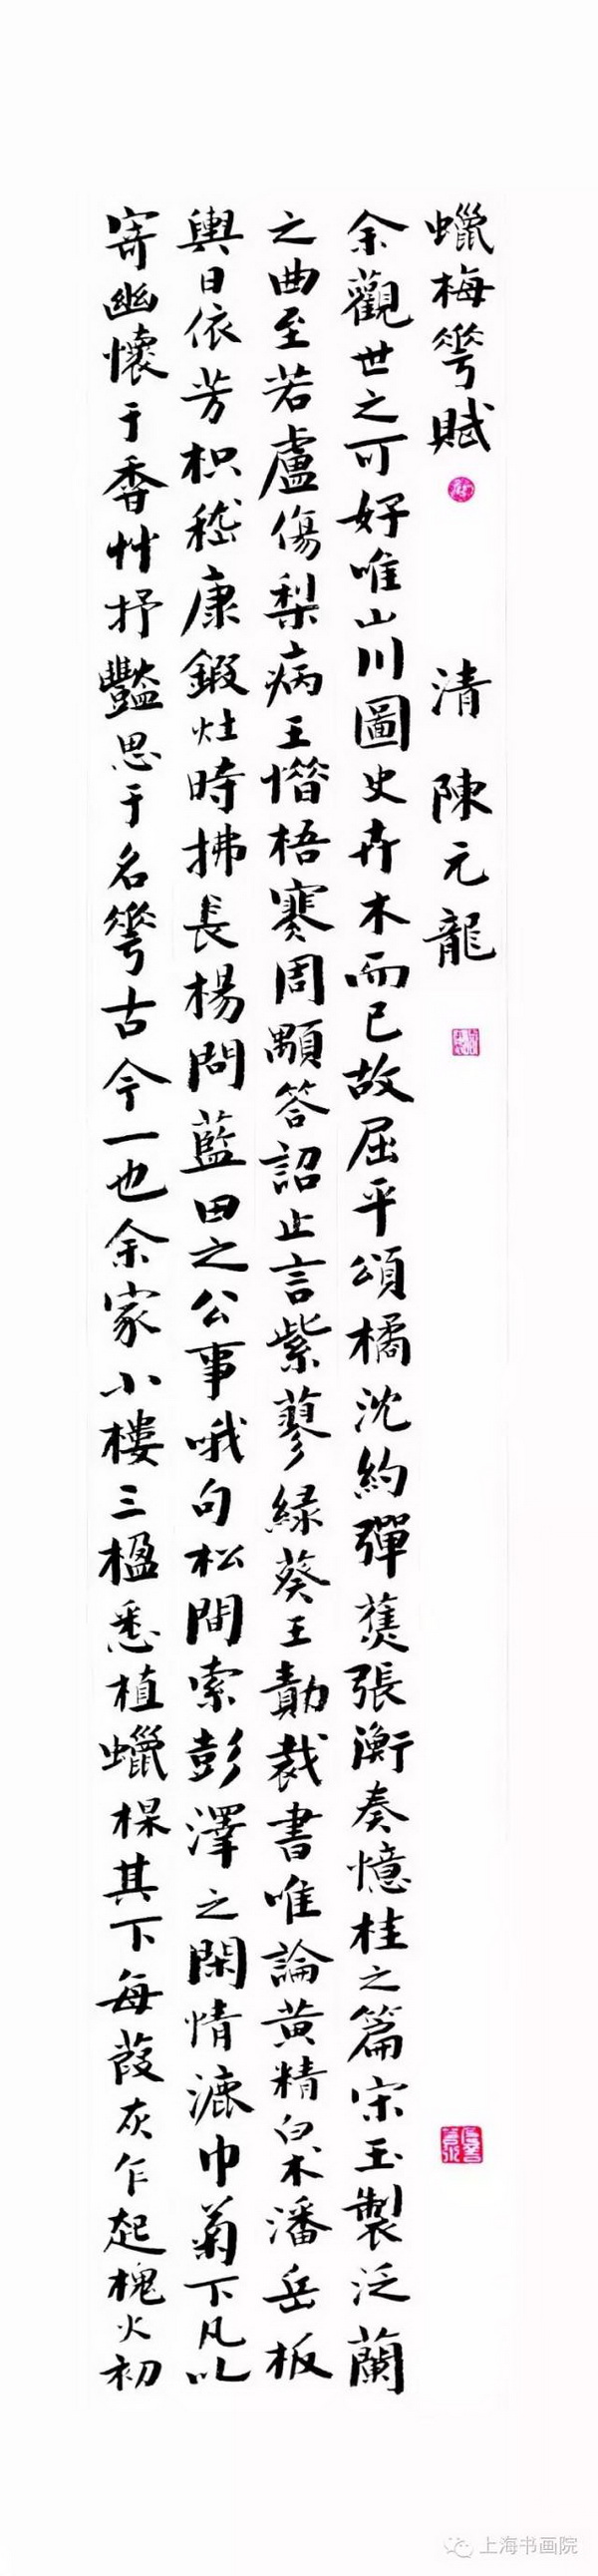 蠟梅蕚賦 清 陳元龍
余觀世之可好唯山川圖史卉木而已故屈平頌橘沈約彈蕉張衡奏憶桂之篇宋玉製泛蘭
之曲至若盧傷梨病王憯梧寒周顒答詔止言紫蓼綠葵王勣裁書唯論黃精白朮潘岳板
輿日依芳枳嵇康鍛灶時拂長楊問藍田之公事哦句松間索彭澤之閑情漉巾菊下凡以
寄幽懷于香艸抒豔思于名蕚古今一也余家小樓三楹悉植蠟梅其下每葭灰乍起槐火初
上海书画院